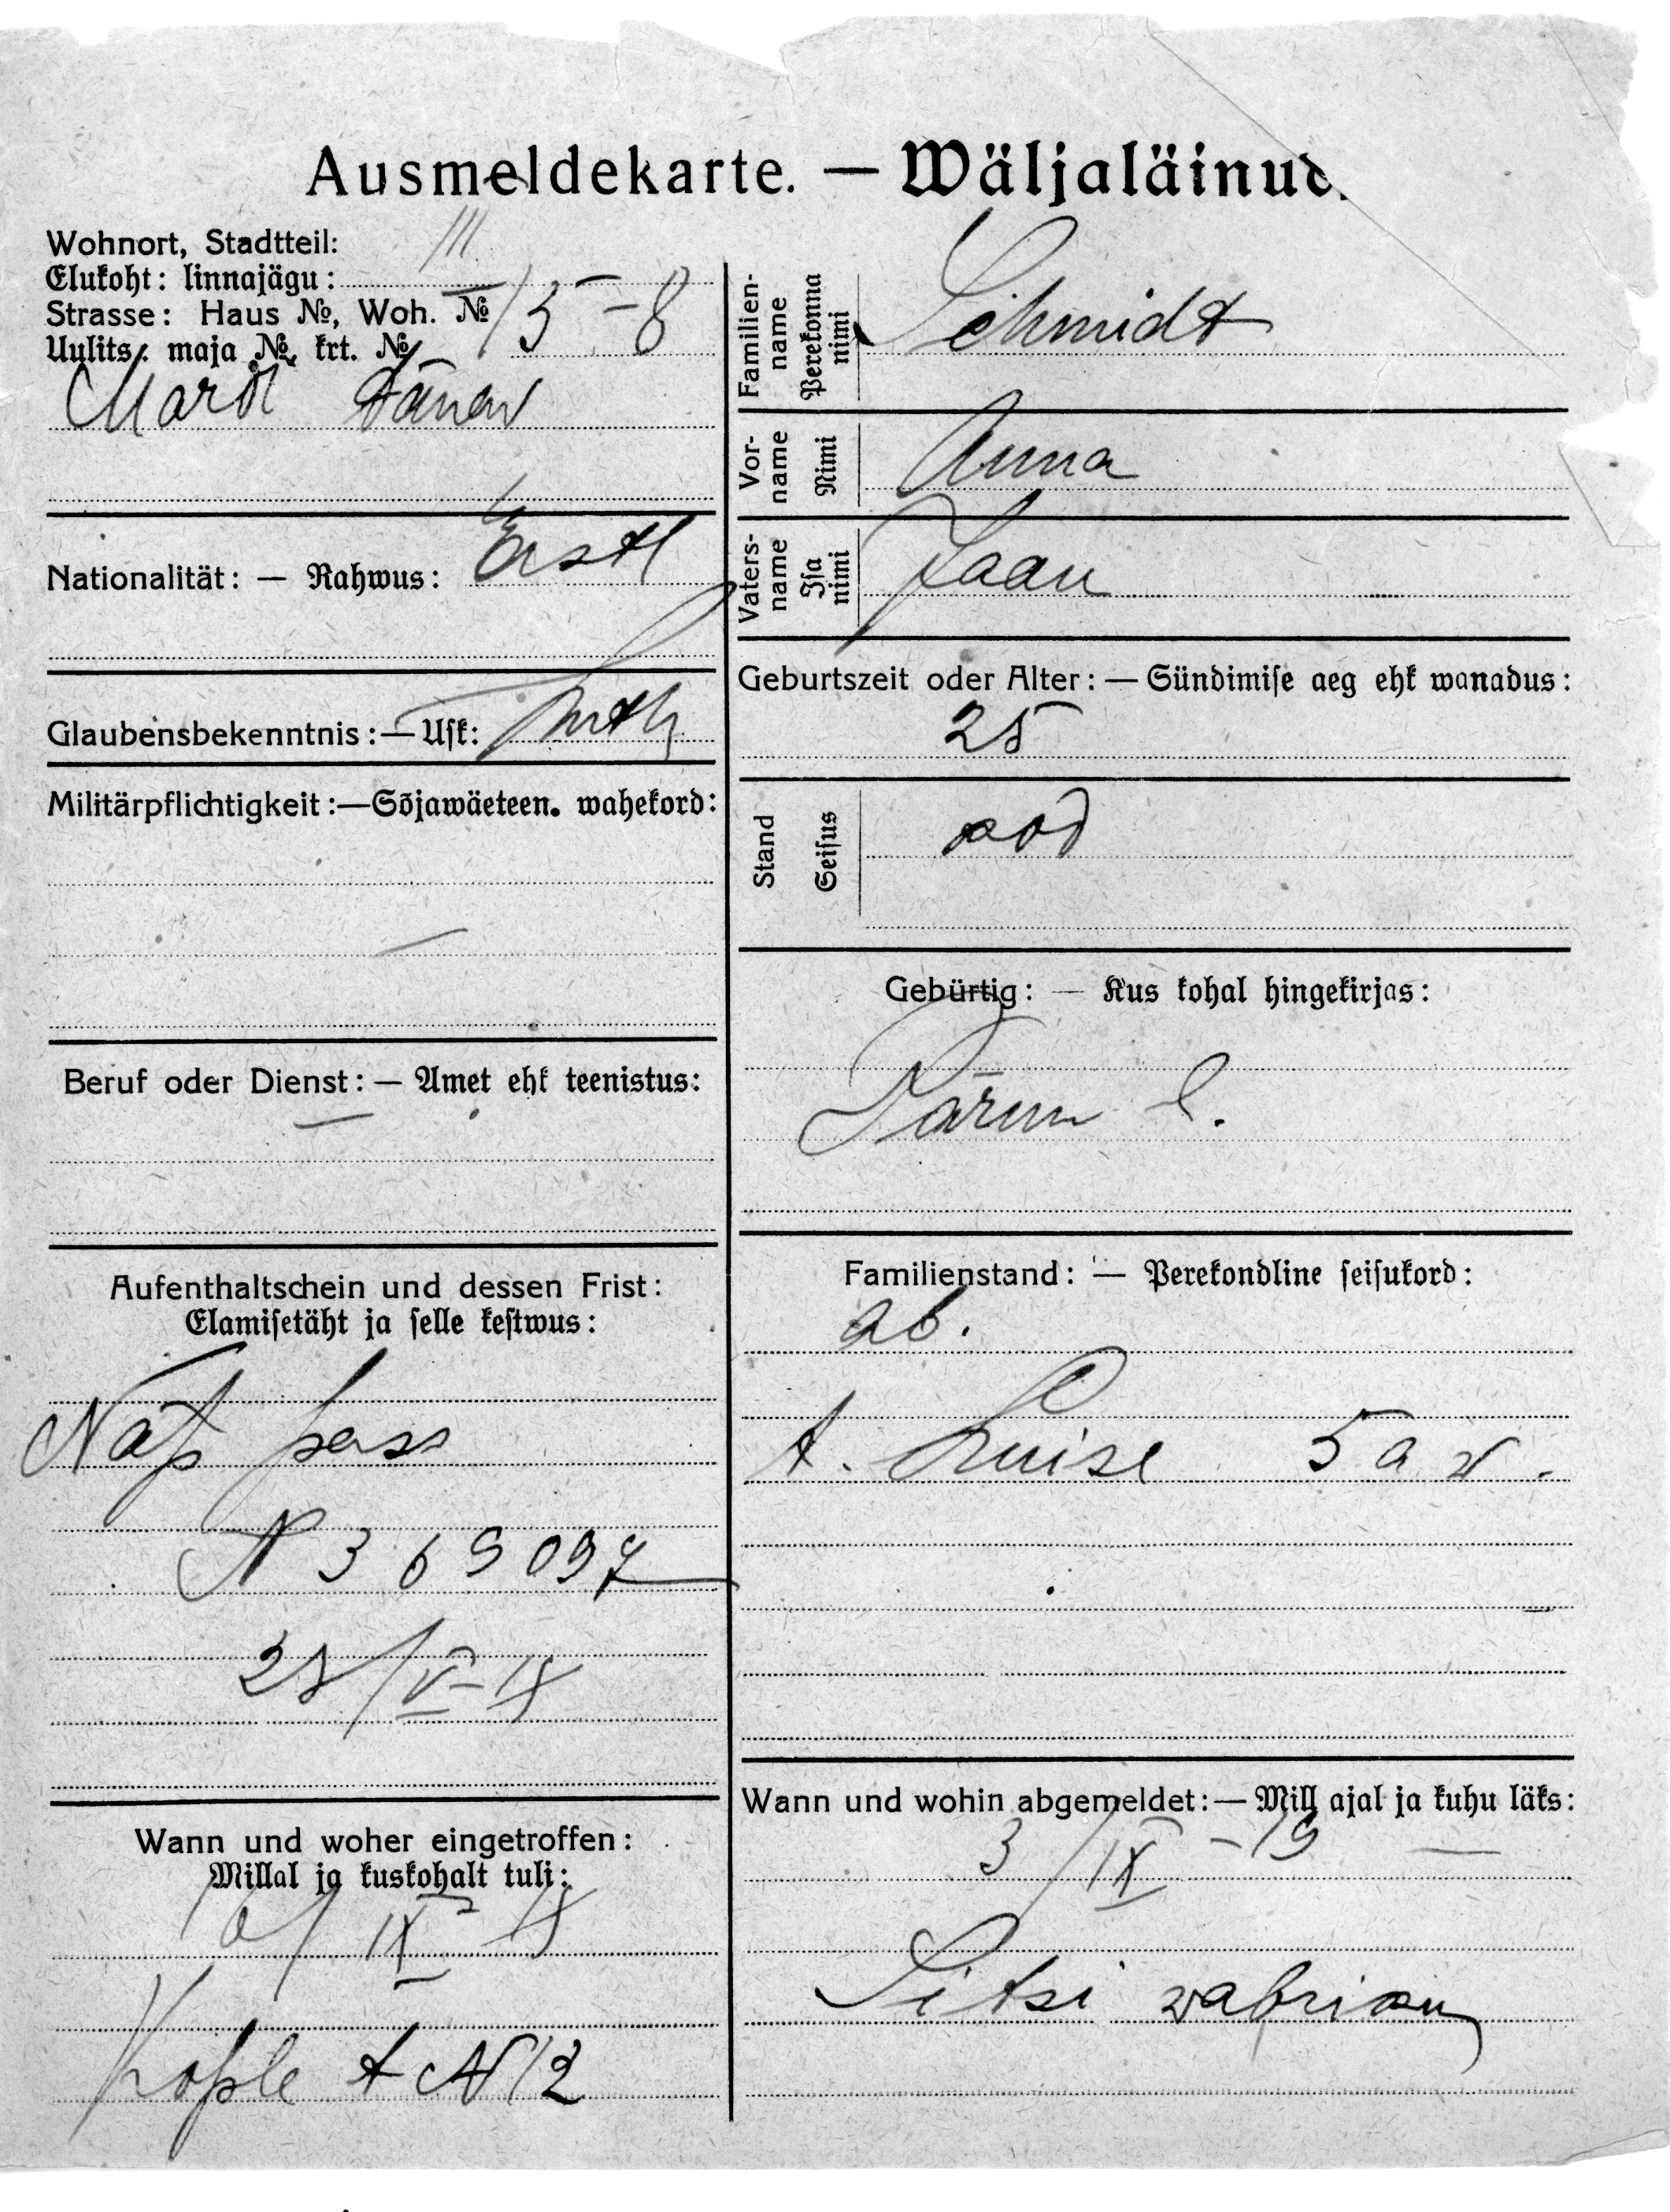 Ausmeldekarte. — Wäljaläinud.
Wohnort, Stadtteil: III
Elukoht: linnajägu:
Strasse: Haus №, Woh. № 15 - 8
Uulits, maja №, krt. №
Mardi tänav
Nationalität: — Rahwus: Eestl
Glaubensbekenntnis: — Usk: Luth
Militärpflichtigkeit: — Sõjawäeteen. wahekord:
—
Beruf oder Dienst: — Amet ehk teenistus:
—
Aufenthaltschein und dessen Frist:
Elamisetäht ja selle kestwus:
pass
N 369097
Wann und woher eingetroffen:
Millal ja kuskohalt tuli:
Kople t N 12
Familienname
Perekonna nimi
Schmidt
Vorname
Nimi
Anna
Vatersname
Isa nimi
Jaan
Geburtszeit oder Alter: — Sündimise aeg ehk wanadus:
25
Stand
Seisus
Gebürtig: — Kus kohal hingekirjas:
Pärnu l.
Familienstand: — Perekondline seisukord:
ab.
t. Luise 5 a w.
Wann und wohin abgemeldet: — Mill ajal ja kuhu läks:
3/IX - 19
Sitsi wabriku